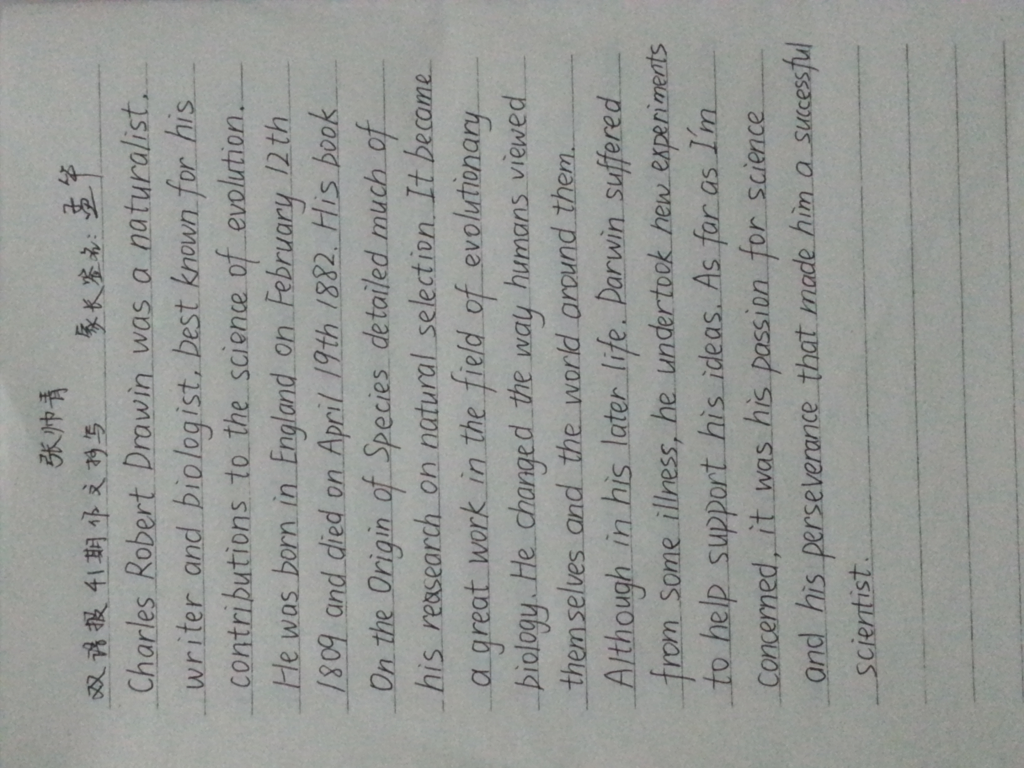 张帅青
双语报41期作文抄写 家长签名: 孟华
Charles Robert Drawin was a naturalist,
writer and biologist, best known for his
contributions to the science of evolution.
He was born in England on February 12th
1809 and died on April 19th 1882. His book
On the Origin of Species detailed much of
his reasearch on natural selection. It become
a great work in the field of evolutionary
biology. He changed the way humans viewed
themselves and the world around them.
Although in his later life. Darwin suffered
from some illness, he undertook new experiments
to help support his ideas. As far as I'm
concerned, it was his passion for science
and his perseverance that made him a successful
scientist.